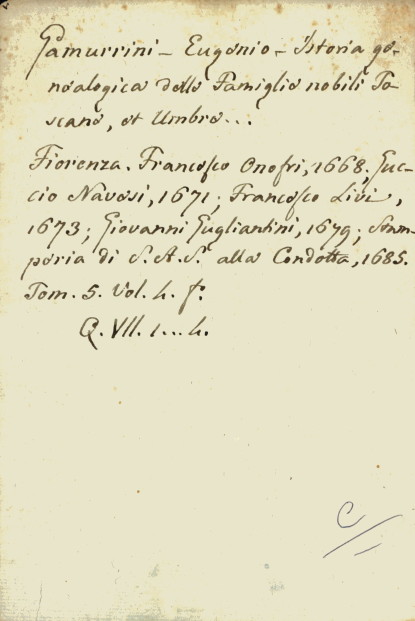 Gamurrini - Eugenio - Istoria ge-
nealogica delle Famiglie nobili To-
scane, et Umbre...
Fiorenza. Francesco Onofri, 1668; Guc-
cio Navesi, 1671; Francesco Livi,
1673; Giovanni Gugliantini, 1679; Stam-
peria di S. A. S. alla Condotta, 1685.
Tom. 5. Vol. 4. f.°
Q. VII. 1...4.
C